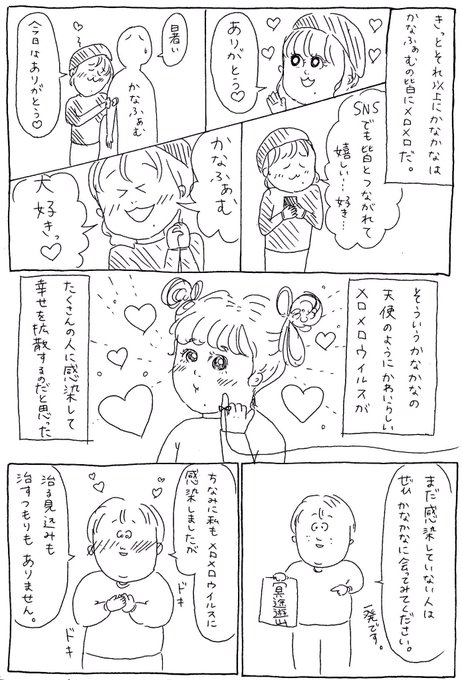 きっとそれ以上にかなかなは
かなふぁむの皆にメロメロだ。
ありがとう♡
暑い
かなふぁむ
今日はありがとう♡
SNS
でも皆とつながれて
嬉しい…好き…
かなふぁむ
犬好きっ♡
そういうかなかなの
天使のようにかわいらしい
メロメロウイルスが
たくさんの人に感染して
幸せを拡散するのだと思った
まだ感染していない人は
ぜひかなかなに会ってみてください。
一発です。
ちなみに私もメロメロウイルスに
感染しましたが
ドキ
ドキ
治る見込みも
治すつもりもありません。